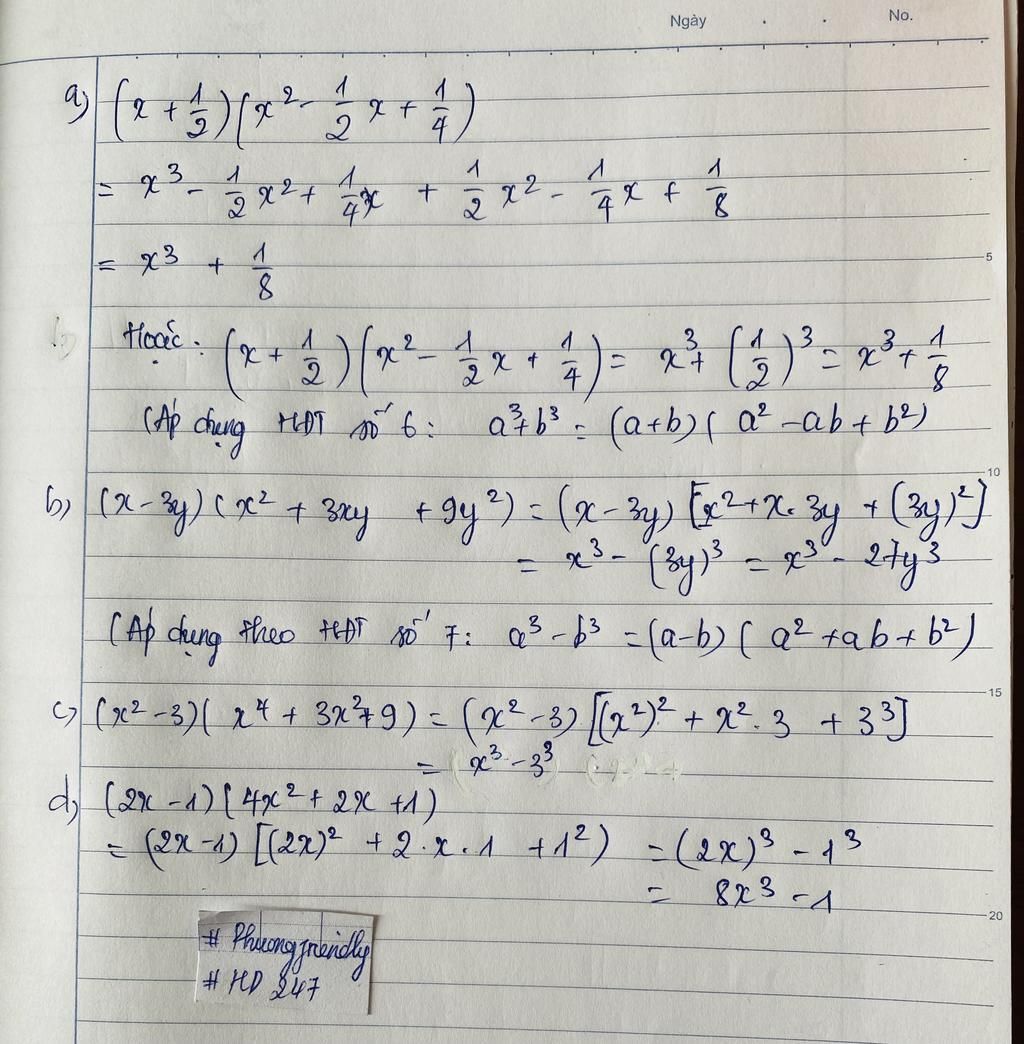 Ngày . . No.
a) (x + 1/2)(x² - 1/2 x + 1/4)
= x³ - 1/2 x² + 1/4 x + 1/2 x² - 1/4 x + 1/8
= x³ + 1/8
5
Hoặc: (x + 1/2)(x² - 1/2 x + 1/4) = x³ + (1/2)³ = x³ + 1/8
(Áp dụng HĐT số 6: a³+b³ = (a+b)( a² - ab + b²)
10
b) (x-3y)(x² + 3xy + 9y²) = (x-3y) [x²+x.3y + (3y)²]
= x³ - (3y)³ = x³ - 27y³
(Áp dụng theo HĐT số 7: a³ - b³ = (a-b) ( a² +ab + b²)
15
c) (x² -3)( x⁴ + 3x²+9) = (x² -3) [(x²)² + x².3 + 3³]
= (x³ - 3³)
d) (2x -1)(4x² + 2x +1)
= (2x -1) [(2x)² + 2.x.1 +1²) = (2x)³ - 1³
= 8x³ -1
20
# Phuongfriendly
# HD 247